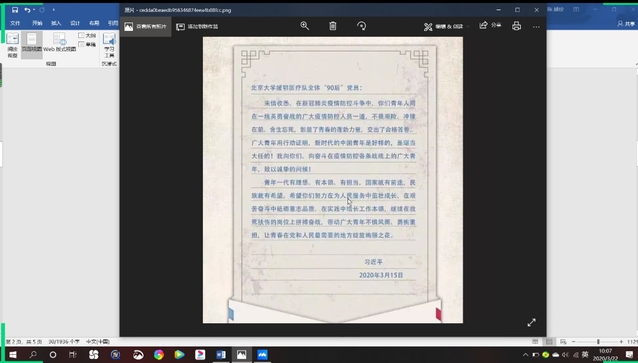 文件
设计
布局
查看所有照片
添加到创作
编辑 & 创建
分享
阅读
视图
页面视图
Web 版式视图
大纲
草稿
学习
工具
北京大学援鄂医疗队全体“90后”党员：
来信收悉。在新冠肺炎疫情防控斗争中，你们青年人同
在一线英勇奋战的广大疫情防控人员一道，不畏艰险、冲锋
在前、舍生忘死，彰显了青春的蓬勃力量，交出了合格答卷。
广大青年用行动证明，新时代的中国青年是好样的，是堪当
大任的！我向你们、向奋斗在疫情防控各条战线上的广大青
年，致以诚挚的问候！
青年一代有理想、有本领、有担当，国家就有前途，民
族就有希望。希望你们努力在为人民服务中茁壮成长、在艰
苦奋斗中砥砺意志品质、在实践中增长工作本领，继续在救
死扶伤的岗位上拼搏奋战，带动广大青年不惧风雨、勇挑重
担，让青春在党和人民最需要的地方绽放绚丽之花。
习近平
2020年3月15日
第 2 页，共 5 页
30/1936 个字
中文(中国)
英
10:07
2020/3/22